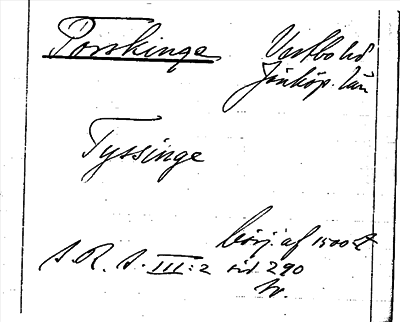 Torskinge Vestbo hd
Jönköp. län
Tyssinge
börj. af 1500 t
S. R. S. III:2 sid 290